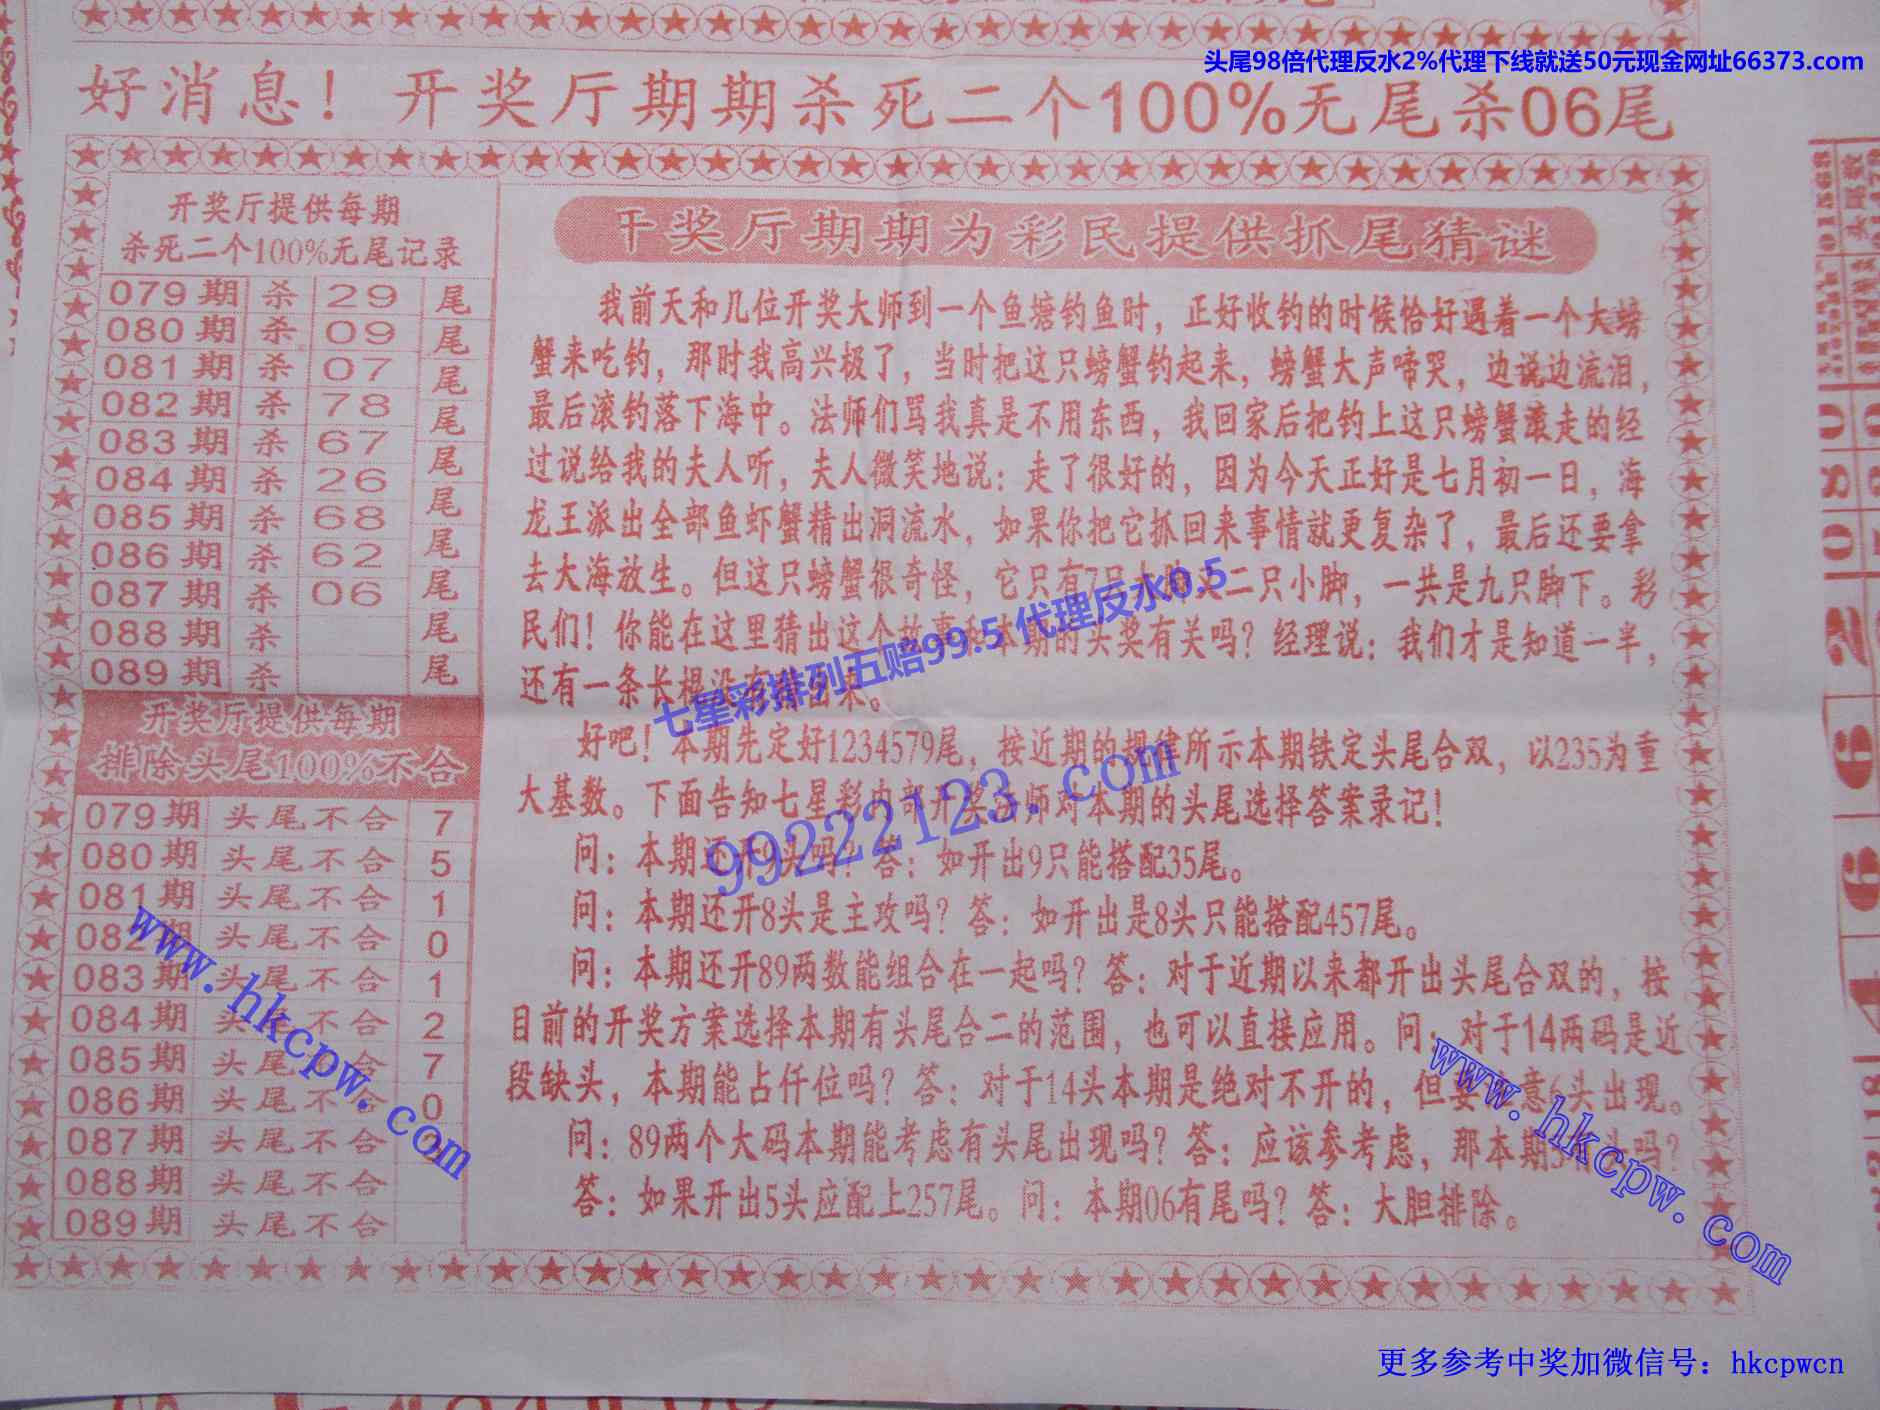 头尾98倍代理反水2%代理下线就送50元现金网址66373.com
好消息！开奖厅期期杀死二个100%无尾杀06尾
开奖厅提供每期
杀死二个100%无尾记录
079期 杀 29 尾
080期 杀 09 尾
081期 杀 07 尾
082期 杀 78 尾
083期 杀 67 尾
084期 杀 26 尾
085期 杀 68 尾
086期 杀 62 尾
087期 杀 06 尾
088期 杀 尾
089期 杀 尾
开奖厅提供每期
排除头尾100%不合
079期 头尾不合 7
080期 头尾不合 5
081期 头尾不合 1
082期 头尾不合 0
083期 头尾不合 1
084期 头尾不合 2
085期 头尾不合 7
086期 头尾不合 0
087期 头尾不合
088期 头尾不合
089期 头尾不合
开奖厅期期为彩民提供抓尾猜谜
我前天和几位开奖大师到一个鱼塘钓鱼时，正好收钓的时候恰好遇着一个大螃
蟹来吃钓，那时我高兴极了，当时把这只螃蟹钓起来，螃蟹大声啼哭，边说边流泪，
最后滚钓落下海中。法师们骂我真是不用东西，我回家后把钓上这只螃蟹滚走的经
过说给我的夫人听，夫人微笑地说：走了很好的，因为今天正好是七月初一日，海
龙王派出全部鱼虾蟹精出洞流水，如果你把它抓回来事情就更复杂了，最后还要拿
去大海放生。但这只螃蟹很奇怪，它只有7只大脚 二只小脚，一共是九只脚下。彩
民们！你能在这里猜出这个故事和本期的头奖有关吗？经理说：我们才是知道一半，
还有一条长棍没有猜出来。
好吧！本期先定好1234579尾，按近期的规律所示本期铁定头尾合双，以235为重
大基数。下面告知七星彩内部开奖大师对本期的头尾选择答案录记！
问：本期还开9头吗？答：如开出9只能搭配35尾。
问：本期还开8头是主攻吗？答：如开出是8头只能搭配457尾。
问：本期还开89两数能组合在一起吗？答：对于近期以来都开出头尾合双的，按
目前的开奖方案选择本期有头尾合二的范围，也可以直接应用。问：对于14两码是近
段缺头，本期能占仟位吗？答：对于14头本期是绝对不开的，但要注意6头出现。
问：89两个大码本期能考虑有头尾出现吗？答：应该参考虑，那本期5 头吗？
答：如果开出5头应配上257尾。问：本期06有尾吗？答：大胆排除。
七星彩排列五赔99.5代理反水0.5
99222123.com
www.hkcpw.com
www.hkcpw.com
更多参考中奖加微信号：hkcpwcn